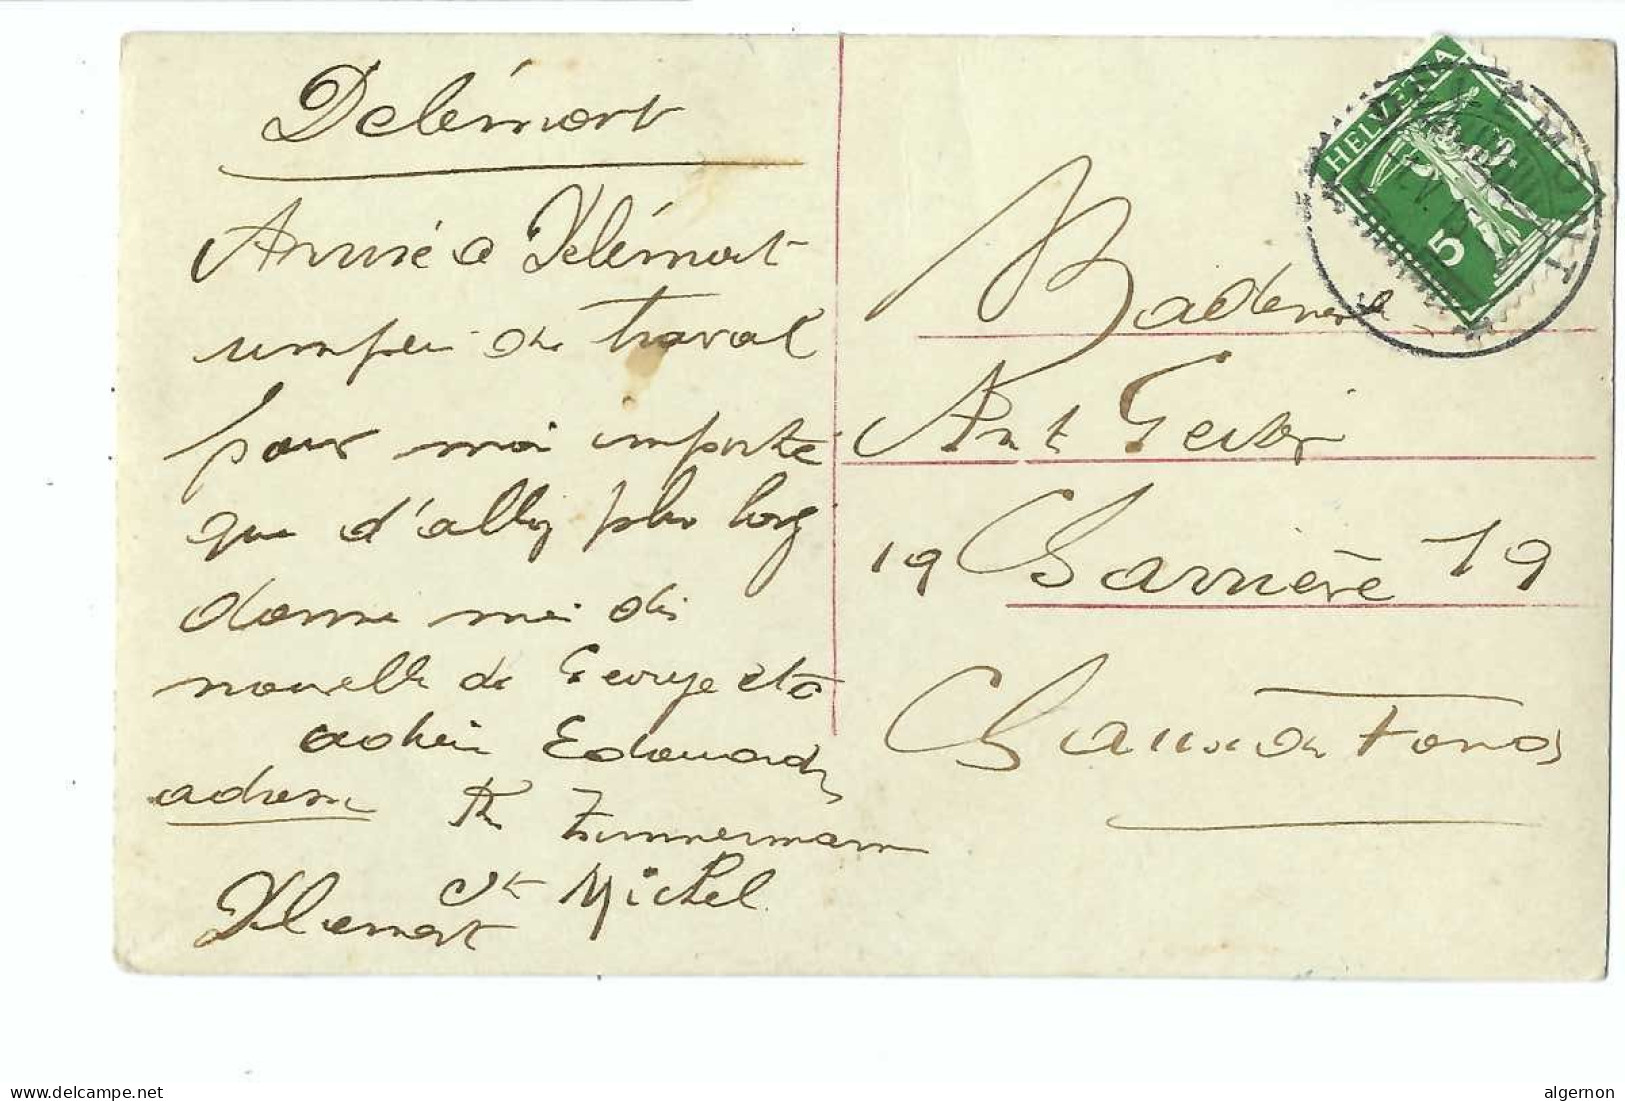 Delémont
Arrivé a Delémont
umpeu de traval
pour moi importe
que d'allez plu long
donne moi des
nouvelle de George etc
adieu Edouard
adresse Ru Zimmermann
St Michel
Delemont
HELVETIA
5
Madame
Ant
19 Charrière 19
Chaux de Fonds
delcampe.net
algernon